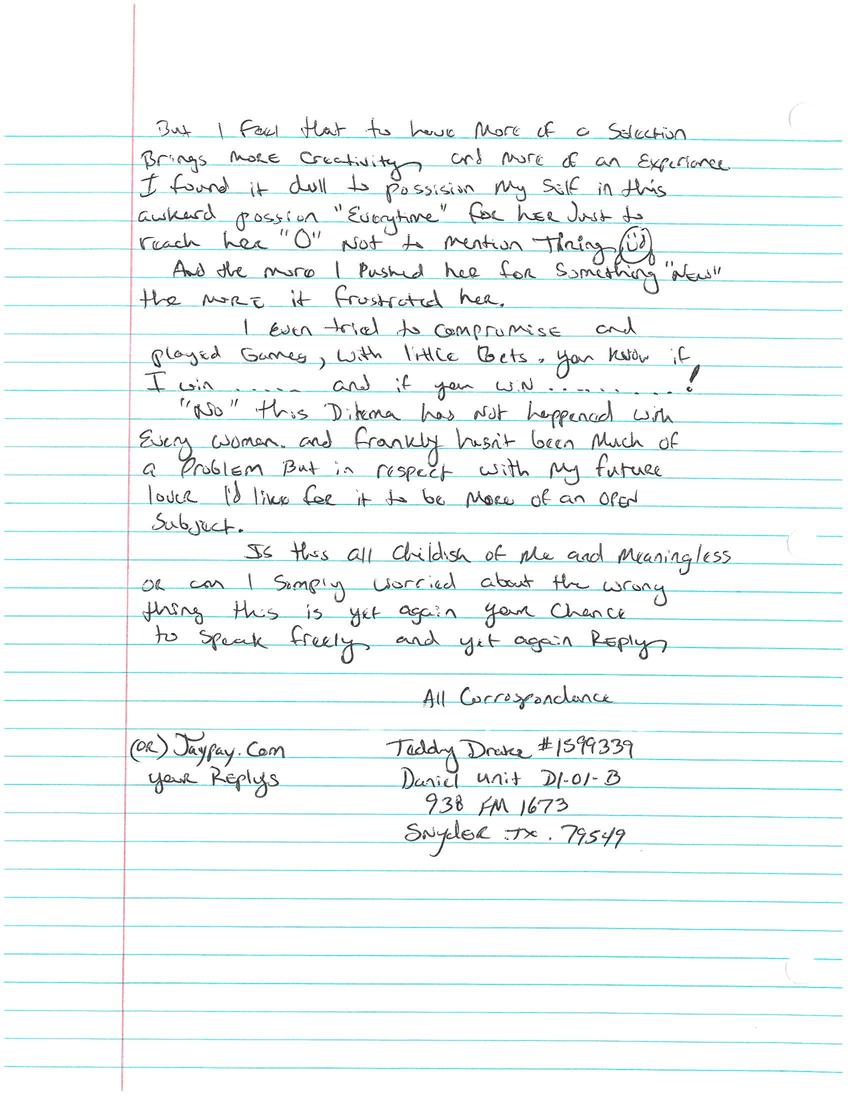 But I Feel that to have More of a Selection
Brings MORE Creativity, and More of an Experiance
I found it dull to possision My Self in this
awkard possion "Everytime" for her Just to
reach her "O" Not to mention Tiring
And the more I Pushed her for Something "NEW"
the MORE it frustrated her.
I Even tried to compromise and
played Games, with little Bets, you know if
I win ..... and if you WIN .........!
"No" this Dilema has Not happened with
Every women. and frankly hasn't been Much of
a Problem But in respect with My future
lover I'd like for it to be More of an OPEN
Subject.
Is this all Childish of Me and Meaningless
OR am I Simply worried about the wrong
thing this is yet again your Chance
to Speak freely, and yet again Reply,
All Correspondance
(OR) Jaypay.Com
your Replys
Teddy Drake #1599339
Daniel unit D1-01-B
938 FM 1673
SnydER TX. 79549